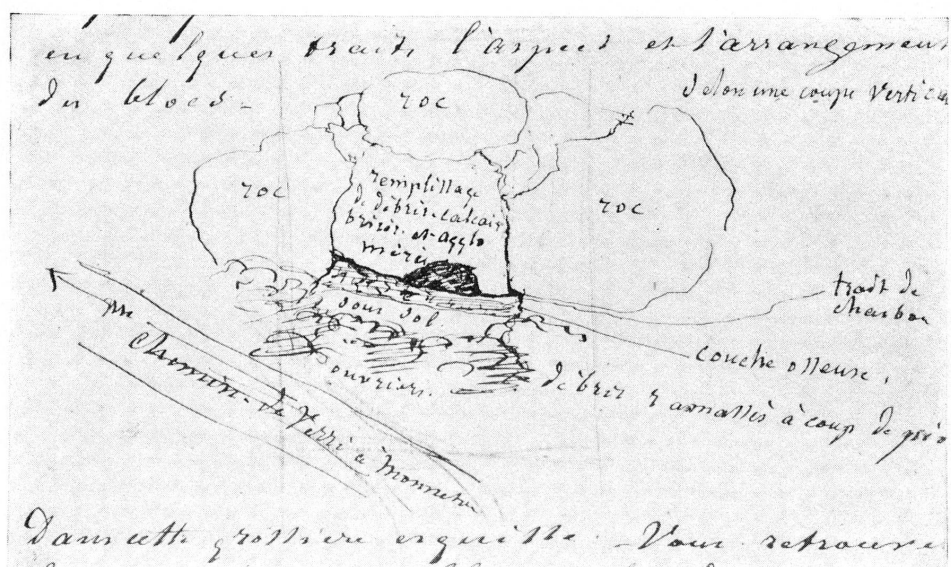 en quelques traits l'aspect et l'arrangement
des blocs -
selon une coupe vertica
roc
roc
roc
remplissage
de débris calcair
brisés et agglo
mérés
sous sol
ouvriers
trait de
charbon
couche osseuse.
débris ramassés à coup de
Chemin de Veyri à Monneti
Dans cette grossière esquisse - Vous retrouve